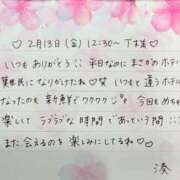 ♡ 2月13日(金) 12:30〜 丁様 ♡
いつもありがとう♡ 平日なのにまさかのホテル
難民になりかけたね♡笑 いつもと違うホテル
なったのも新鮮でワクワク♡ 今回もめちゃ
楽しくて ラブラブな時間であっという間♡♡
また会えるのを楽しみにしてるね♡
湊